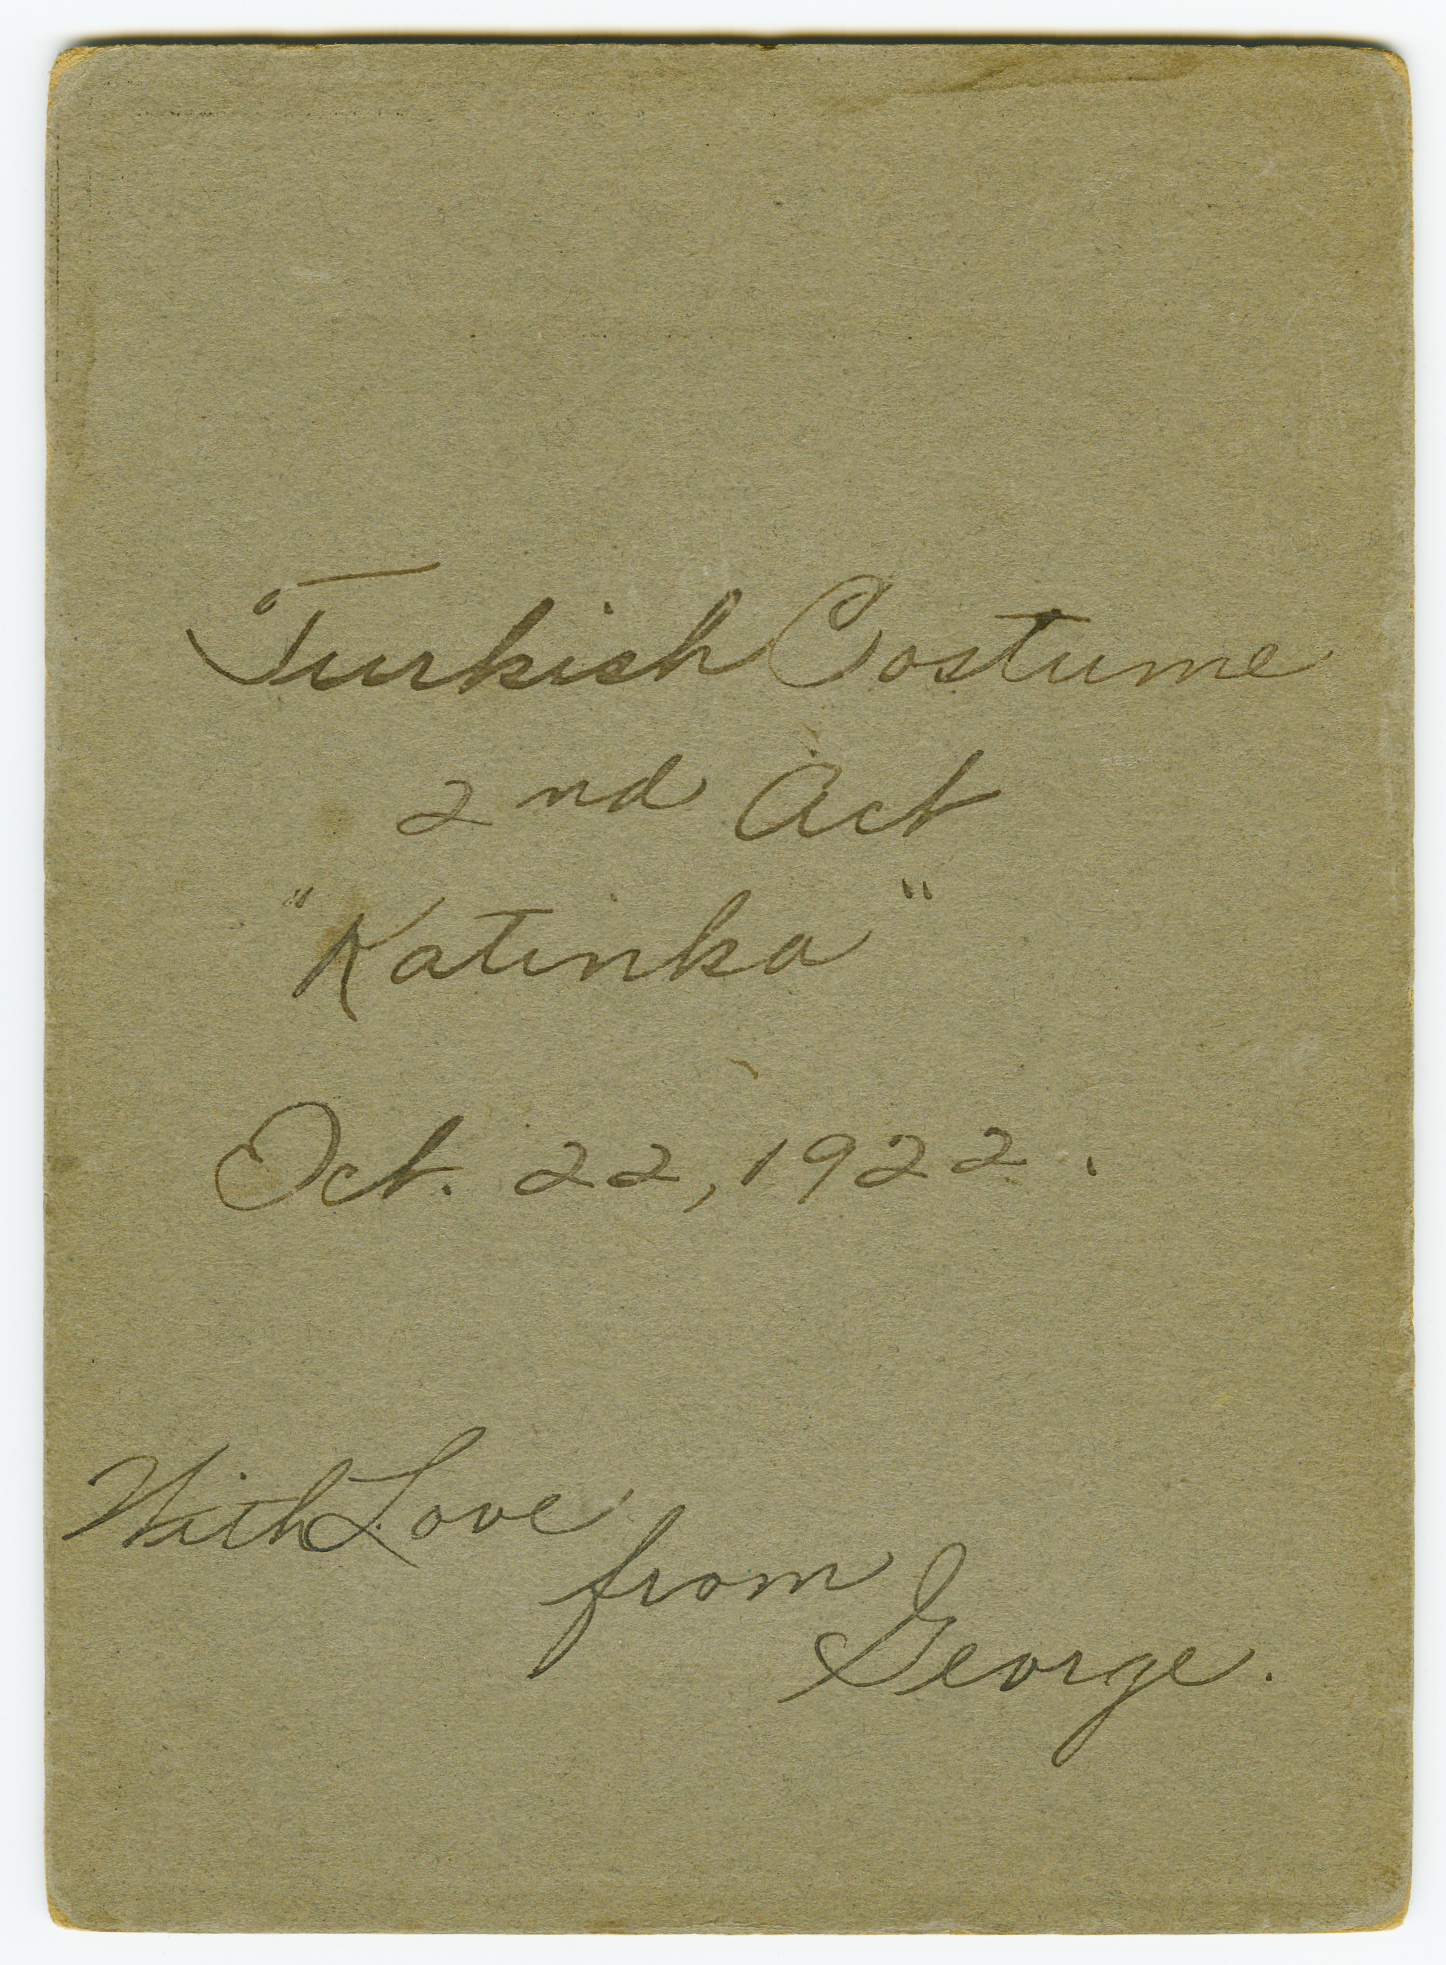 Turkish Costume
2nd Act
"Katinka"
Oct. 22, 1922.
With Love
from
George.